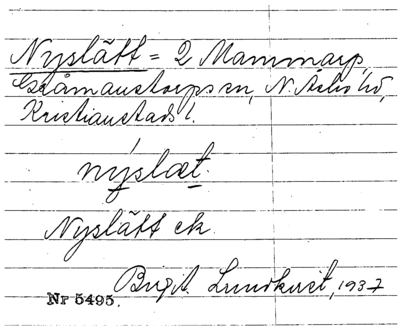 Nyslätt = 2 Mammarp,
Gråmanstorps sn, N. Åsbo hd,
Kristianstads l.
nýslæt.
Nyslätt ek
Birgit Lundkvist, 1937
Nr 5495.